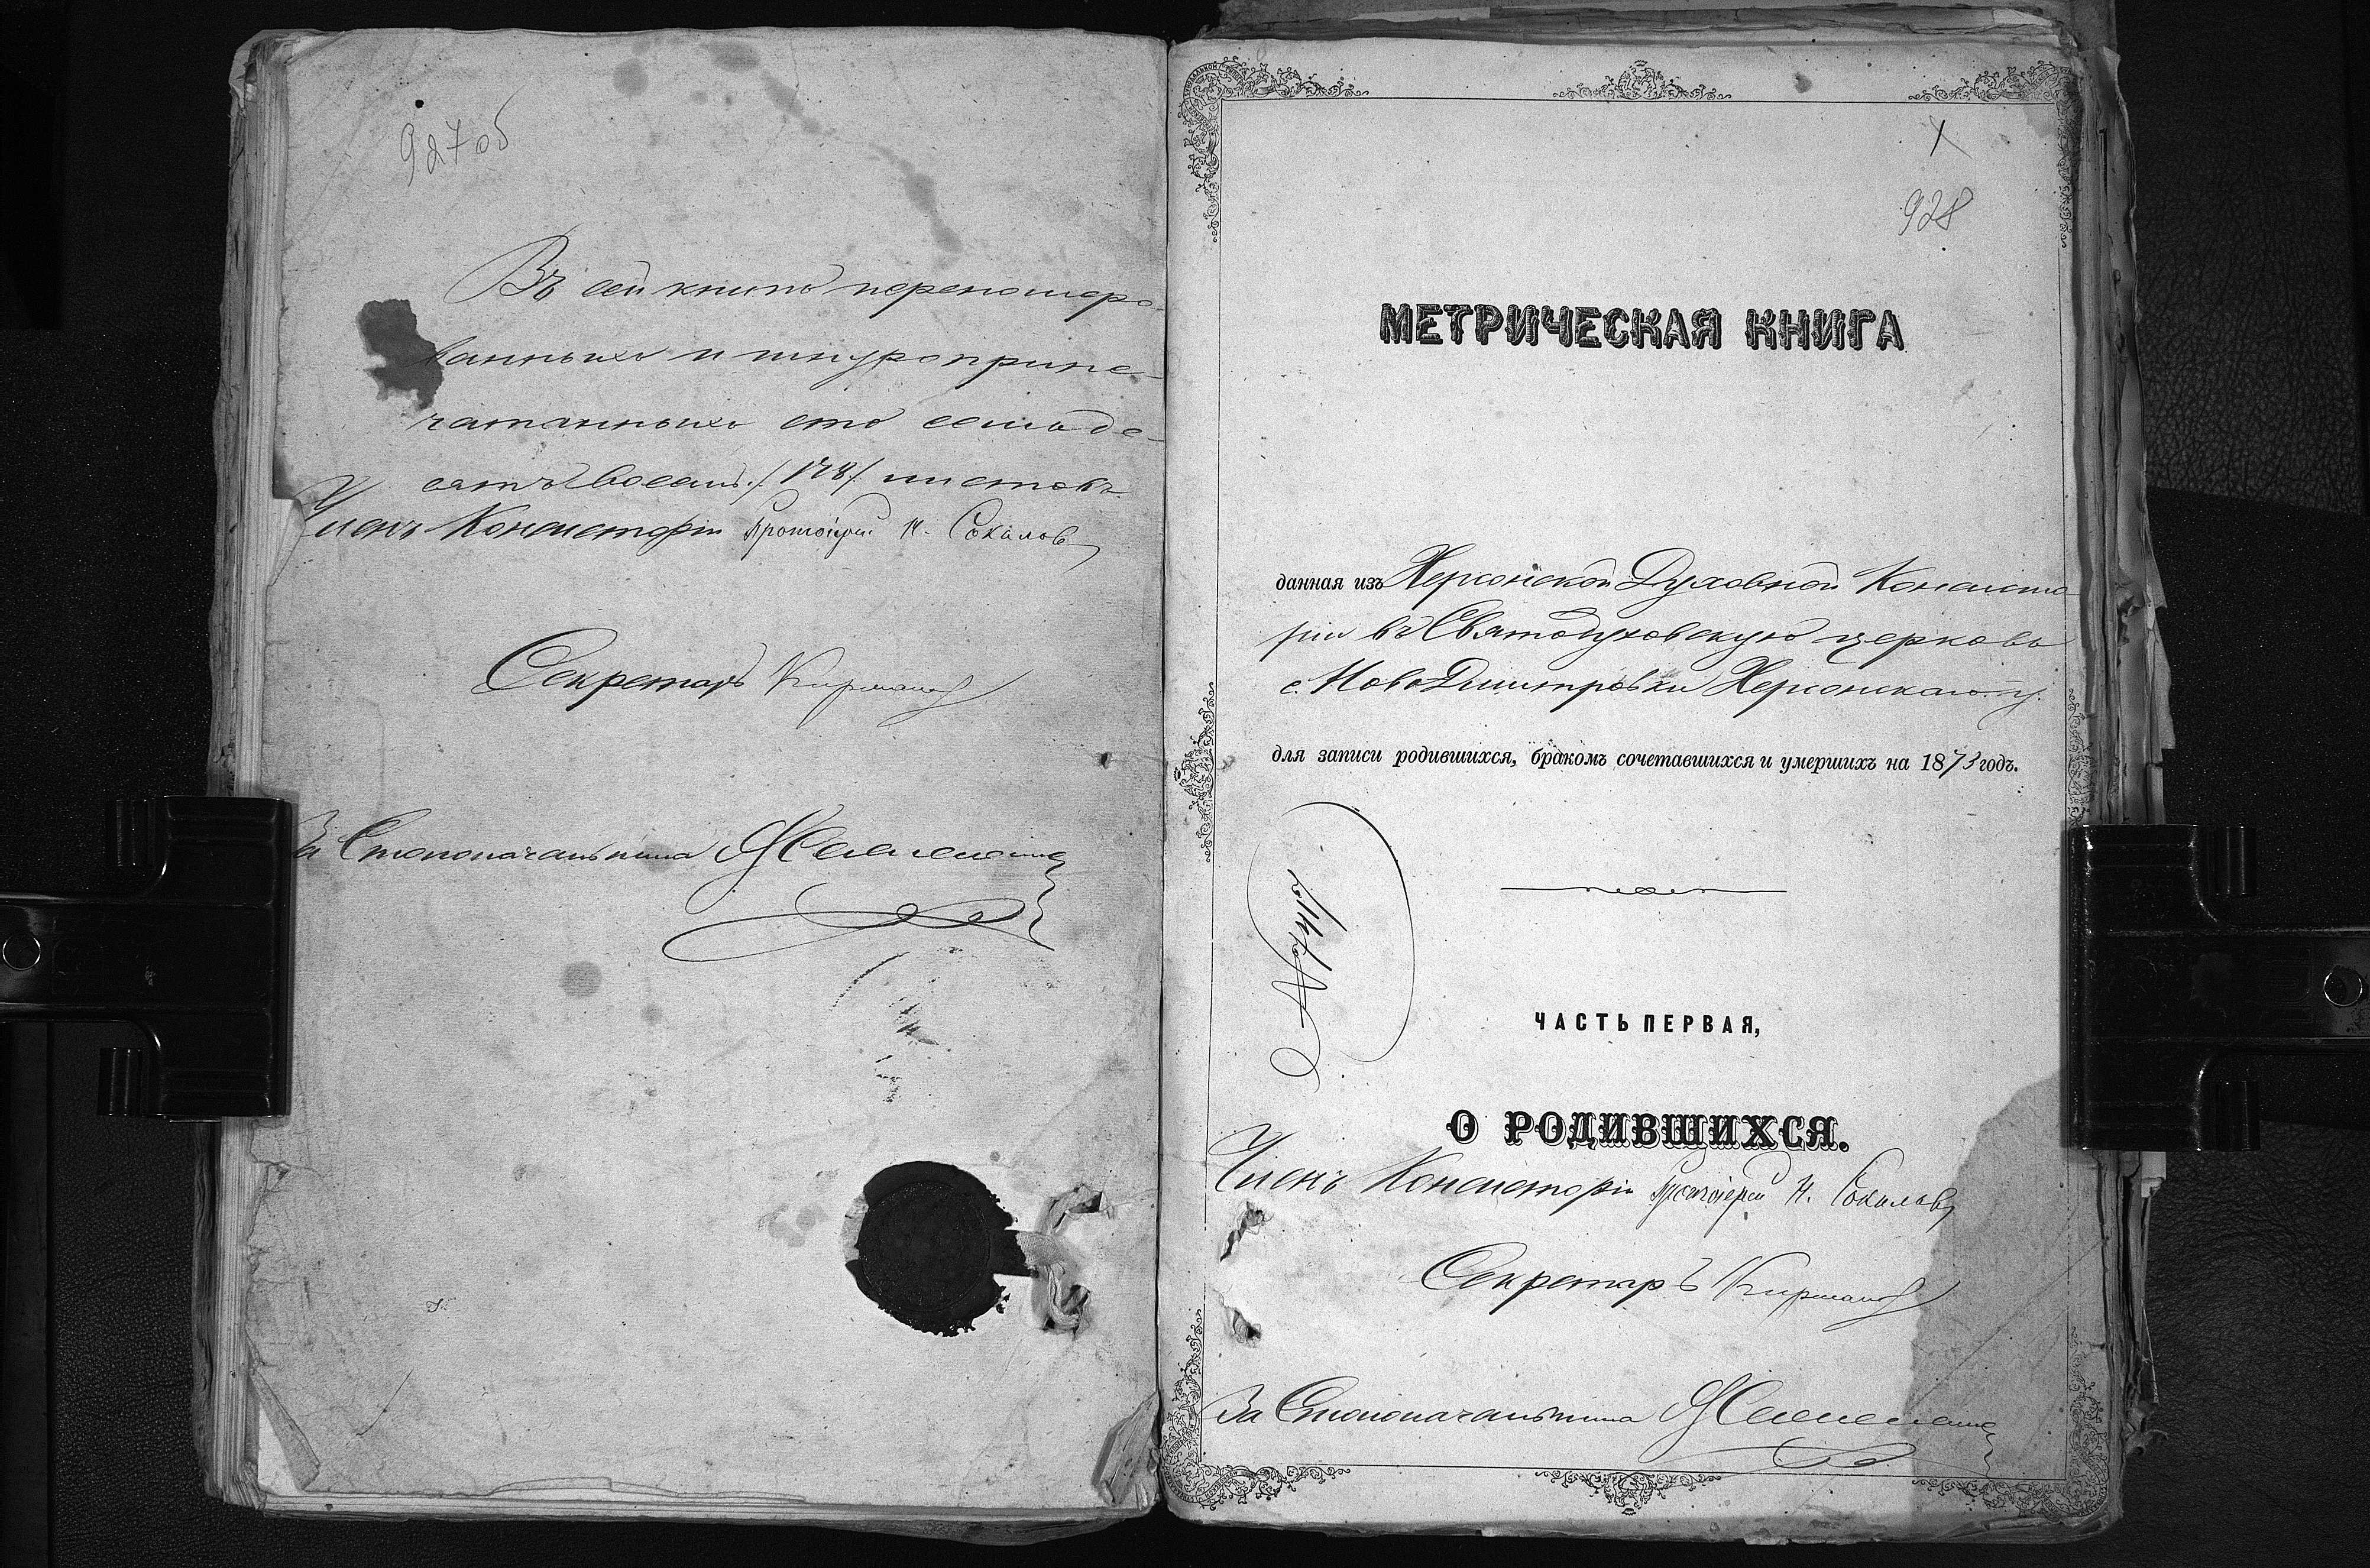 927об
Въ сей книгѣ перенумеро-
ванныхъ и шнуроприпе-
чатанныхъ сто семьде-
сятъ восемь /178/ листовъ
Членъ Консисторіи Протоіерей Н. Соколовъ
Секретарь
За Столоначальника
X
928
МЕТРИЧЕСКАЯ КНИГА
данная изъ Херсонской Духовной Консисто
ріи въ Святодуховскую церковь
с. Ново Дмитровки Херсонскаго у.
для записи родившихся, бракомъ сочетавшихся и умершихъ на 1873 годъ.
ЧАСТЬ ПЕРВАЯ,
О РОДИВШИХСЯ.
Членъ Консисторіи Протоіерей Н. Соколовъ
Секретарь
За Столоначальника